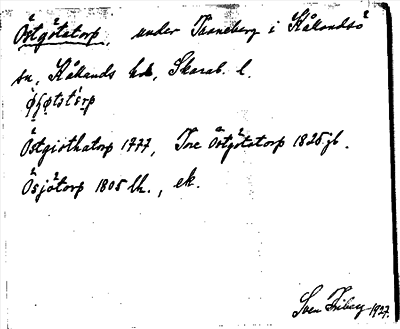 Östgötatorp, under Traneberg i Kållandsö
sn, Kållands hd, Skarab. l.
Östgiothatorp 1777, Tre Östgötatorp 1825 jb.
Åsjötorp 1805 lk., ek.
Sven Friberg 1927.